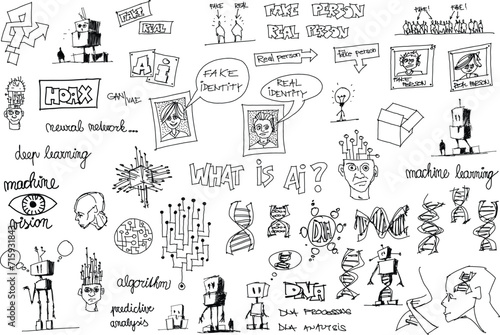 FAKE
REAL
FAKE
REAL
FAKE PERSON
REAL PERSON
FAKE!
FAKE!
Real person
fake person
Ai
FAKE
IDENTITY
REAL
IDENTITY
FAKE
PERSON
REAL
PERSON
HOAX
GAN/VAE
neural network...
deep learning
machine
vision
WHAT iS Ai?
machine learning
DNA
algorithm
predictive
analysis
DNA
DNA PROCESSING
DNA ANALYSIS
Adobe Stock
715931843